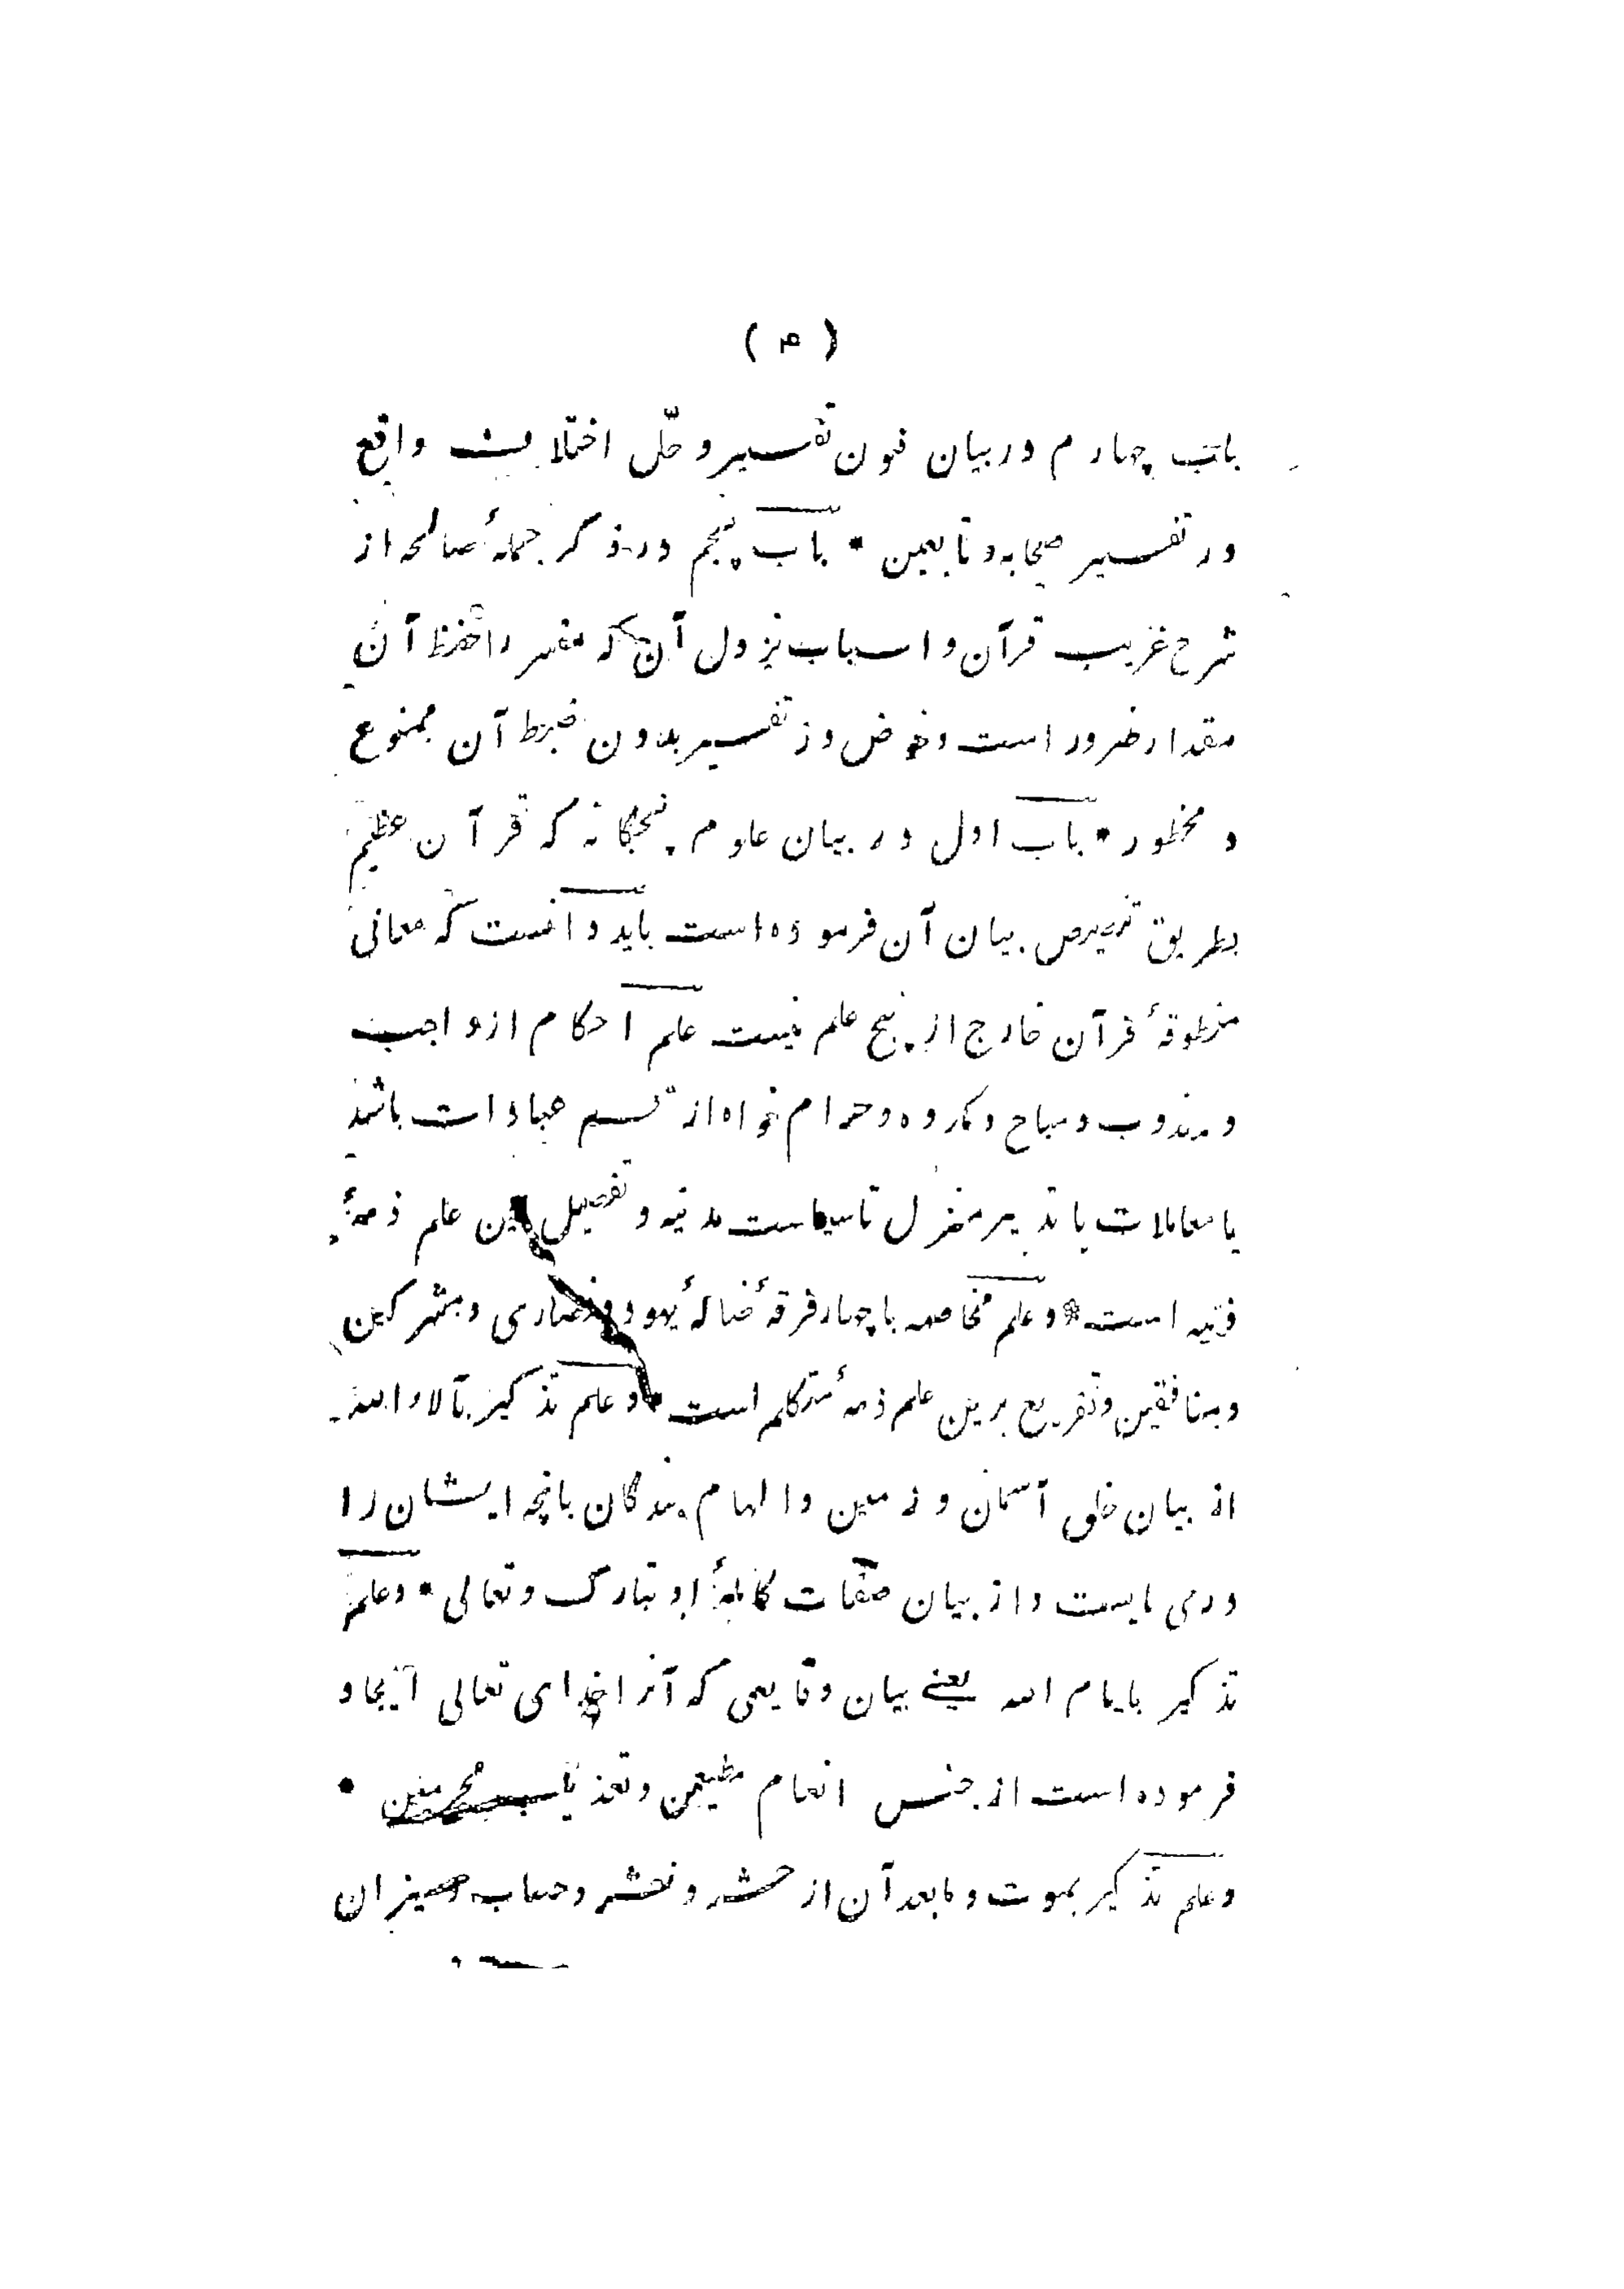 ( ۴ )
باب چهارم در بیان فنون تفسیر و حلّ اختلاف واقع
در تفسیر صحابه و تابعین * باب پنجم در ذکر جملهٔ صالحه از
شرح غریب قرآن و اسباب نزول آن که مفسر را حفظ آن
مقدار ضرور است و خوض در تفسیر بدون ضبط آن ممنوع
و محظور * باب اول در بیان علوم پنجگانه که قرآن عظیم
بطریق تنصیص بیان آن فرموده است باید دانست که معانی
منطوقهٔ قرآن خارج از پنج علم نیست علم احکام از واجب
و مندوب و مباح و مکروه و حرام خواه از قسم عبادات باشد
یا معاملات یا تدبیر منزل تا سیاست مدنیه و تفصیل این علم ذمهٔ
فقیه است * و علم مخاصمه با چهار فرقهٔ ضالهٔ یهود و نصاری و مشرکین
و منافقین و تفریع برین علم ذمهٔ متکلم است * و علم تذکیر بآلاء الله
از بیان خلق آسمان و زمین و الهام بندگان بانچه ایشان را
در می بایست و از بیان صفات کاملهٔ او تبارک و تعالی * و علم
تذکیر بایام الله یعنے بیان وقایعی که آنرا خدای تعالی ایجاد
فرموده است از جنس انعام مطیعین و تعذیب مجرمین *
و علم تذکیر بموت و مابعد آن از حشر و نشر و حساب و میزان